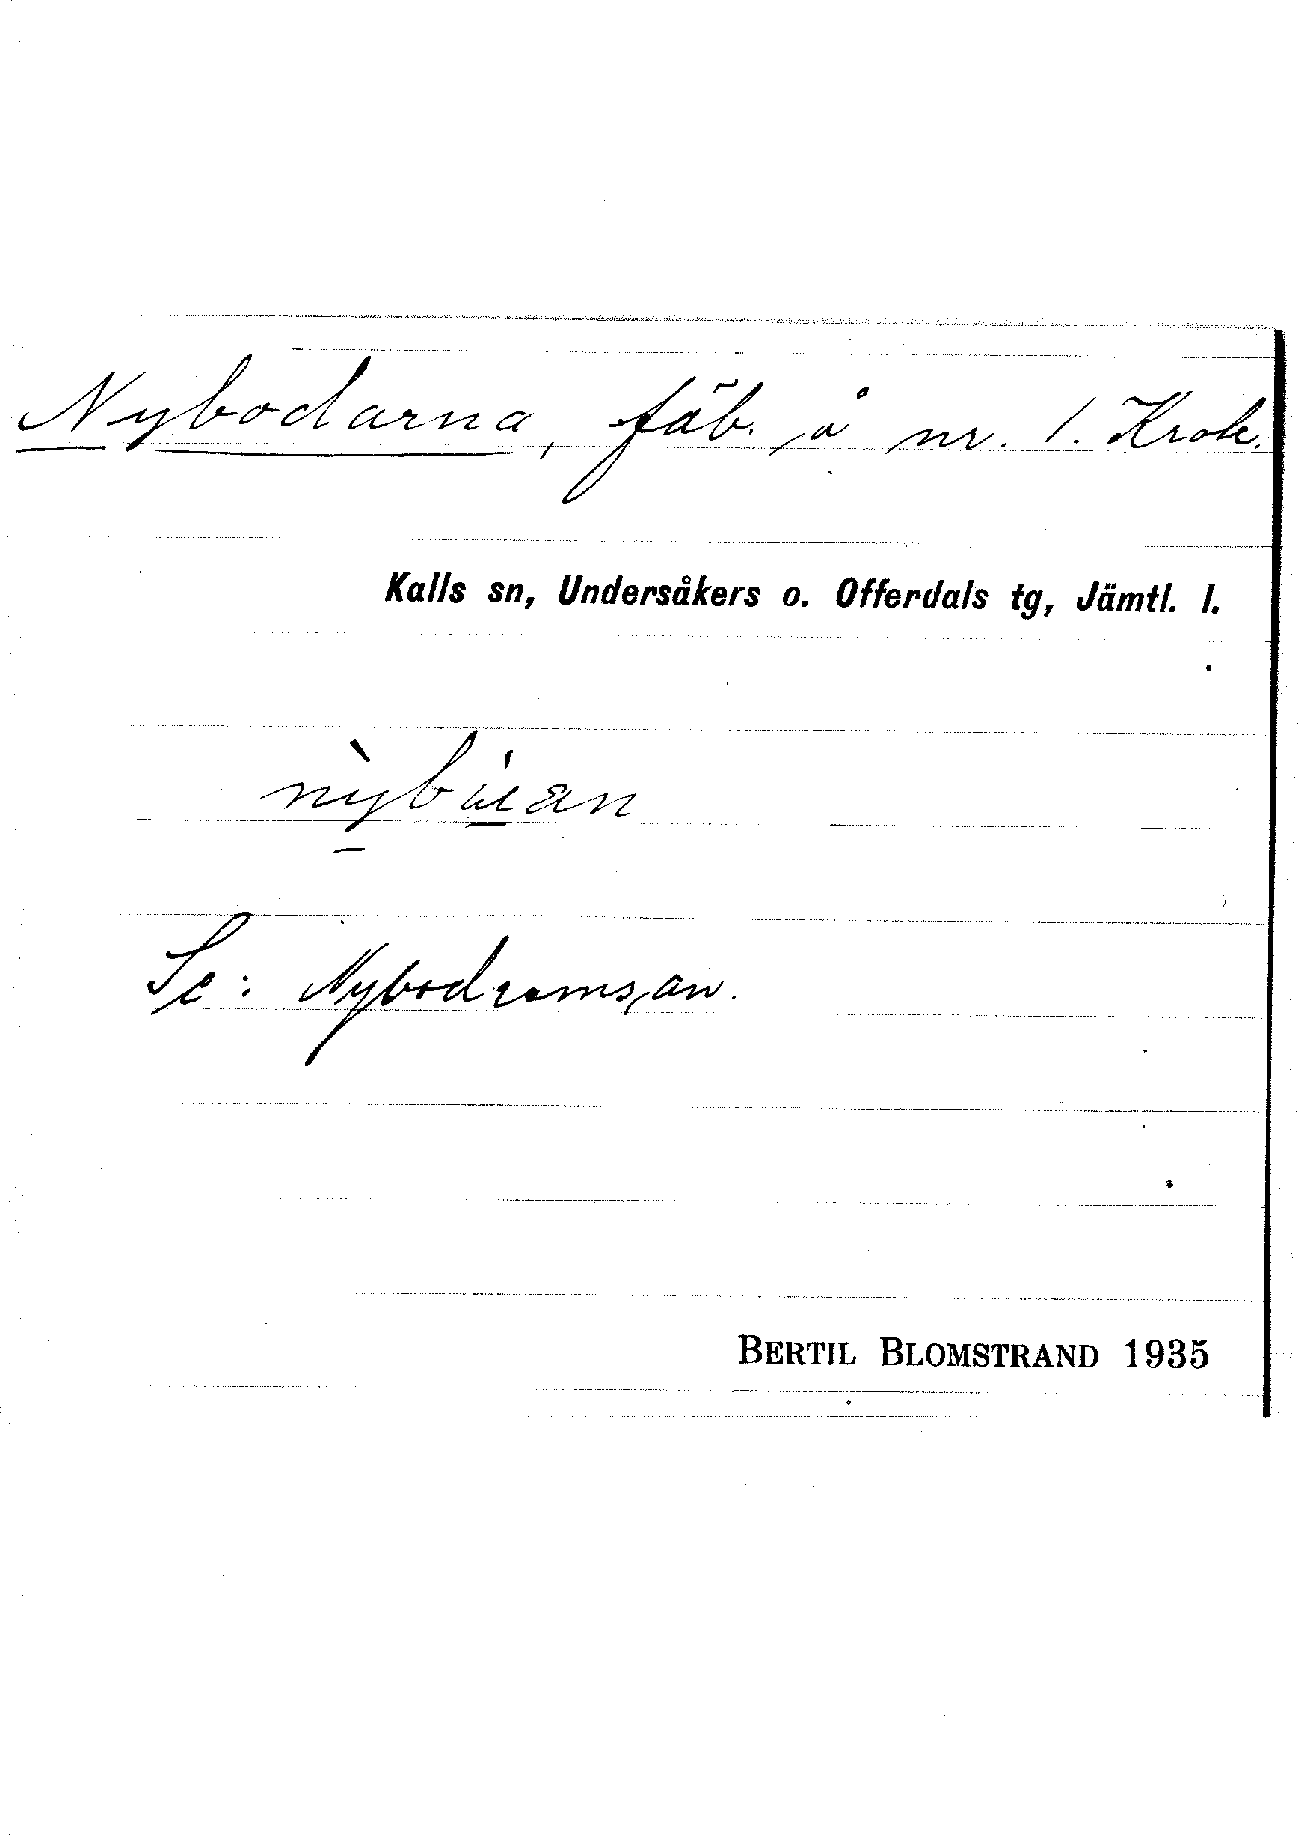 Nybodarna, fäb. å nr. 1. Krok.
Kalls sn, Undersåkers o. Offerdals tg, Jämtl. l.
Se:
BERTIL BLOMSTRAND 1935